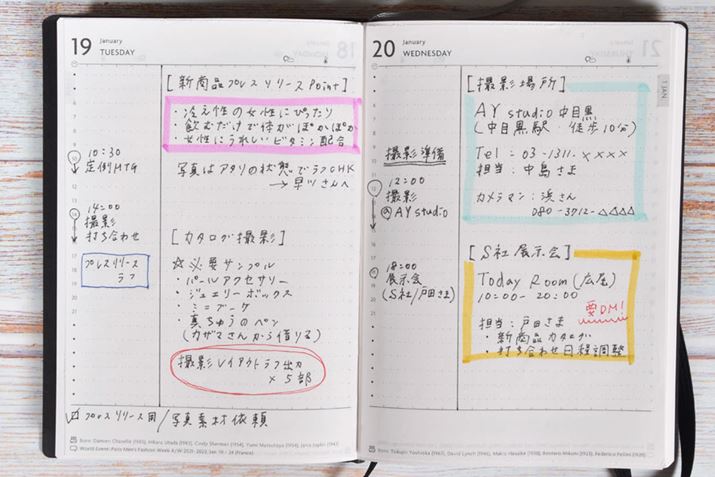 19
January
TUESDAY
10:30
定例MTG
14:00
撮影
打ち合わせ
プレスリリース
ラフ
[新商品プレスリリースPoint]
・冷え性の女性にぴったり
・飲むだけで体がぽかぽか
・女性にうれしいビタミン配合
写真はアタリの状態でラフCHK
→早ツさんへ
[カタログ撮影]
☆※要サンプル
・パールアクセサリー
・ジュエリーボックス
・ミニブーケ
・真ちゅうのペン
(カザマさんから借りる)
撮影レイアウトラフ出力
×5部
プレスリリース用/写真素材依頼
Born: Damien Chazelle (1985), Hikaru Utada (1983), Cindy Sherman (1954), Yumi Matsutoya (1954), Janis Joplin (1943)
World Event: Paris Men's Fashion Week A/W 2021-2022, Jan 19 - 24 (France)
20
January
WEDNESDAY
1 JAN
撮影準備
12:00
撮影
@AY studio
18:00
展示会
(S社/戸田さま)
[撮影場所]
AY studio 中目黒
(中目黒駅 徒歩10分)
Tel = 03-1311-××××
担当:中島さま
カメラマン:浜さん
080-3712-△△△△
[S社展示会]
Today Room (広尾)
10:00-20:00
要DM!
担当:戸田さま
・新商品カタログ
・打ち合わせ日程調整